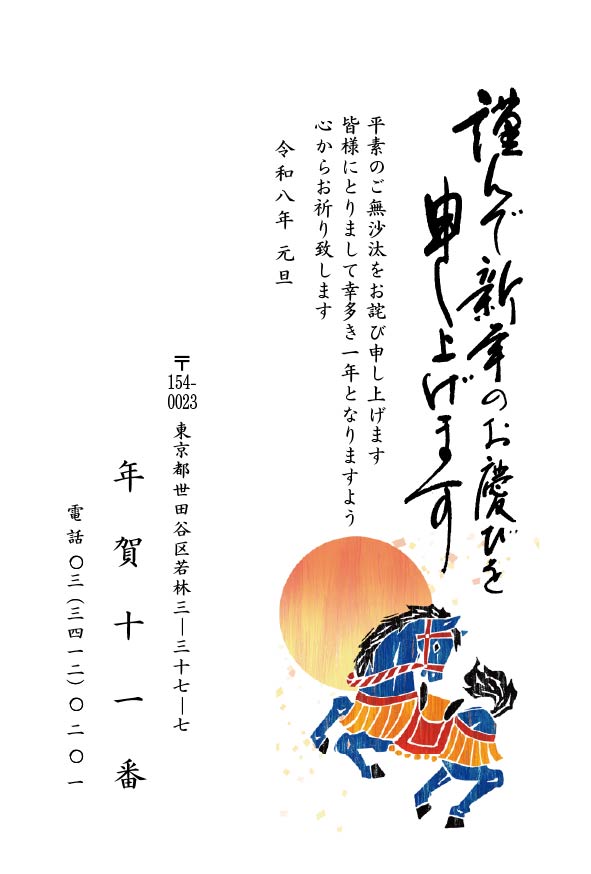 謹んで新年のお慶びを
申し上げます
平素のご無沙汰をお詫び申し上げます
皆様にとりまして幸多き一年となりますよう
心からお祈り致します
令和八年 元旦
〒154-0023 東京都世田谷区若林三―三十七―七
年賀十一番
電話〇三(三四一二)〇二〇一